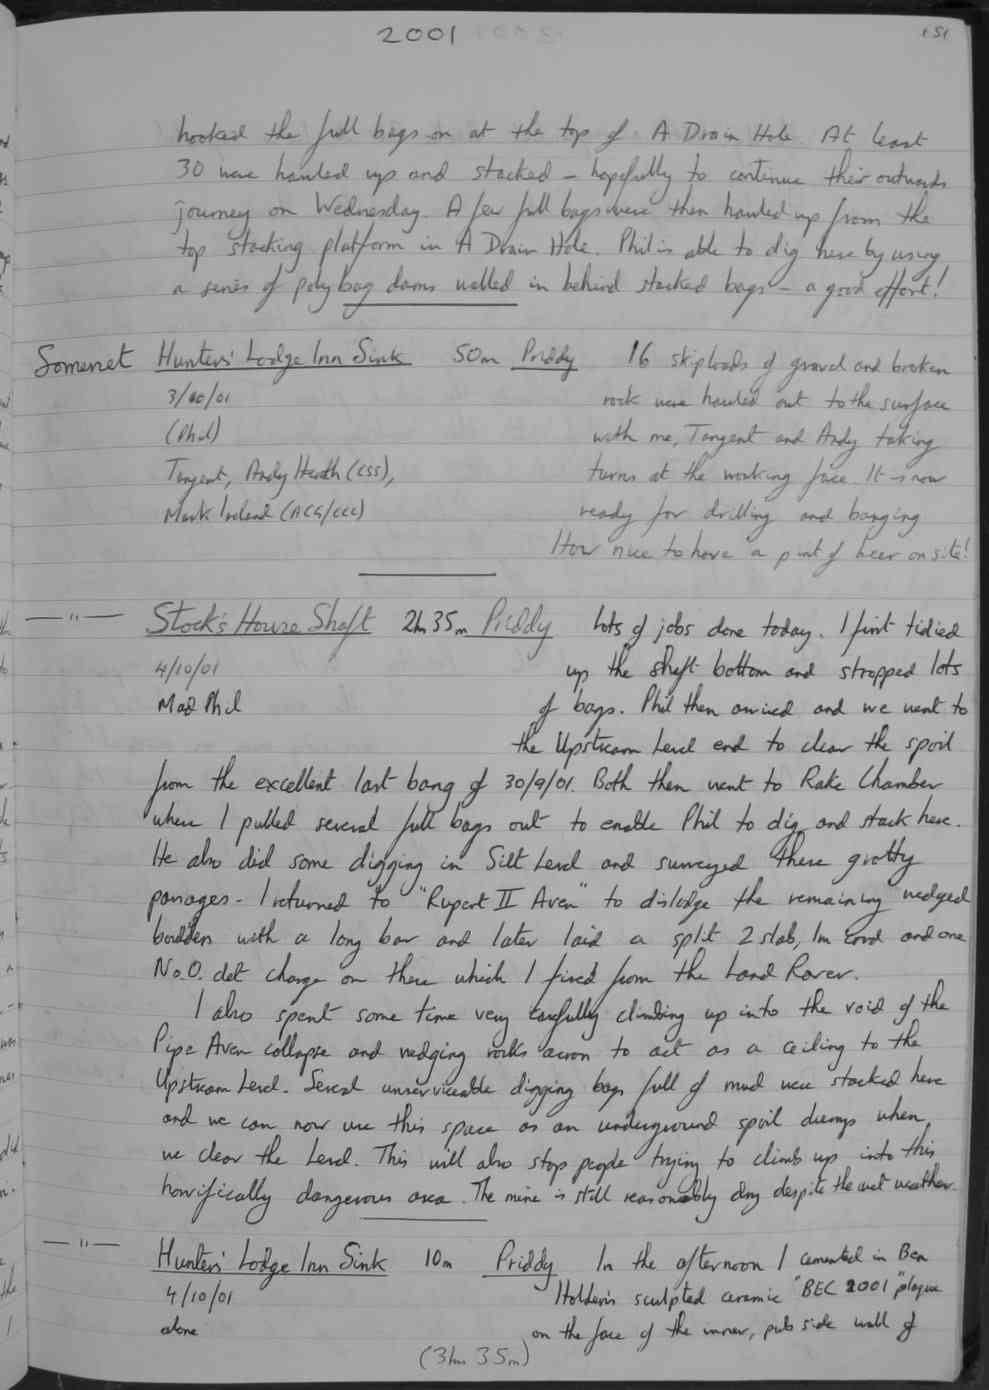 2001
151
hooked the full bags on at the top of A Drain Hole. At least
30 were hauled up and stacked - hopefully to continue their outwards
journey on Wednesday. A few full bags were then hauled up from the
top stacking platform in A Drain Hole. Phil is able to dig here by using
a series of polybag dams walled in behind stacked bags - a good effort!
Somerset Hunters' Lodge Inn Sink 50m Priddy 16 skiploads of gravel and broken
3/10/01 rock were hauled out to the surface
(Phil) with me, Tangent and Andy taking
Tangent, Andy Heath (CSS), turns at the working face. It is now
Mark Ireland (ACG/CCC) ready for drilling and banging
How nice to have a pint of beer on site!
—"— Stock's House Shaft 2h 35m Priddy Lots of jobs done today. I first tidied
4/10/01 up the shaft bottom and stropped lots
Mad Phil of bags. Phil then arrived and we went to
the Upstream Level end to clear the spoil
from the excellent last bang of 30/9/01. Both then went to Rake Chamber
where I pulled several full bags out to enable Phil to dig and stack here.
He also did some digging in Silt Level and surveyed these grotty
passages - I returned to "Rupert II Aven" to dislodge the remaining wedged
boulders with a long bar and later laid a split 2 slab, 1m cord and one
No.0. det charge on these which I fired from the Land Rover.
I also spent some time very carefully climbing up into the void of the
Pipe Aven collapse and wedging rocks across to act as a ceiling to the
Upstream Level. Several unserviceable digging bags full of mud were stacked here
and we can now use this space as an underground spoil dump when
we clear the Level. This will also stop people trying to climb up into this
horrifically dangerous area. The mine is still reasonably dry despite the wet weather.
—"— Hunters' Lodge Inn Sink 10m Priddy In the afternoon I cemented in Ben
4/10/01 Holden's sculpted ceramic "BEC 2001" plaque
alone on the face of the inner, pub side wall of
(3hrs 35m)